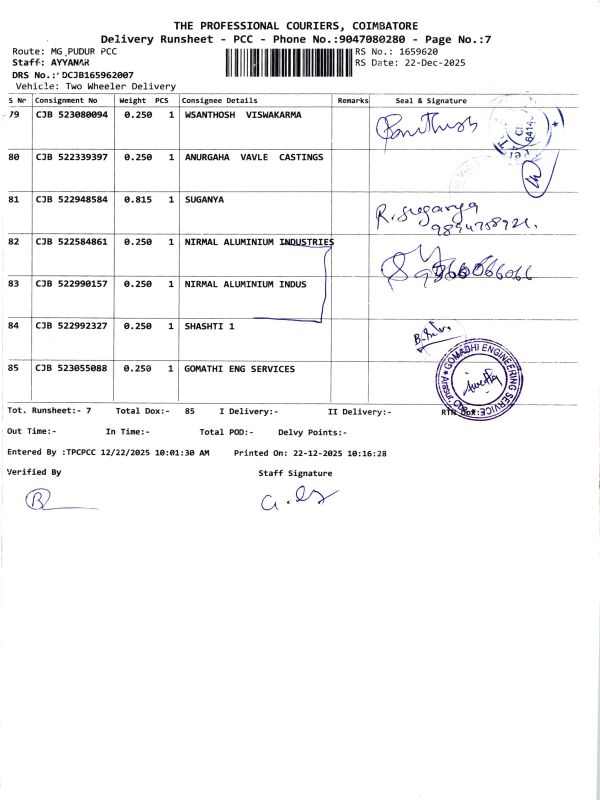 THE PROFESSIONAL COURIERS, COIMBATORE
Delivery Runsheet - PCC - Phone No.:9047080280 - Page No.:7
Route: MG PUDUR PCC RS No.: 1659620
Staff: AYYANAR RS Date: 22-Dec-2025
DRS No.: DCJB165962007
Vehicle: Two Wheeler Delivery
S Nr Consignment No Weight PCS Consignee Details Remarks Seal & Signature
79 CJB 523080094 0.250 1 WSANTHOSH VISWAKARMA
80 CJB 522339397 0.250 1 ANURGAHA VAVLE CASTINGS
81 CJB 522948584 0.815 1 SUGANYA R. Suganya
82 CJB 522584861 0.250 1 NIRMAL ALUMINIUM INDUSTRIES
83 CJB 522990157 0.250 1 NIRMAL ALUMINIUM INDUS
84 CJB 522992327 0.250 1 SHASHTI 1
85 CJB 523055088 0.250 1 GOMATHI ENG SERVICES GOMADHI ENGINEERING SERVICE
Tot. Runsheet:- 7 Total Dox:- 85 I Delivery:- II Delivery:-
Out Time:- In Time:- Total POD:- Delvy Points:-
Entered By :TPCPCC 12/22/2025 10:01:30 AM Printed On: 22-12-2025 10:16:28
Verified By Staff Signature